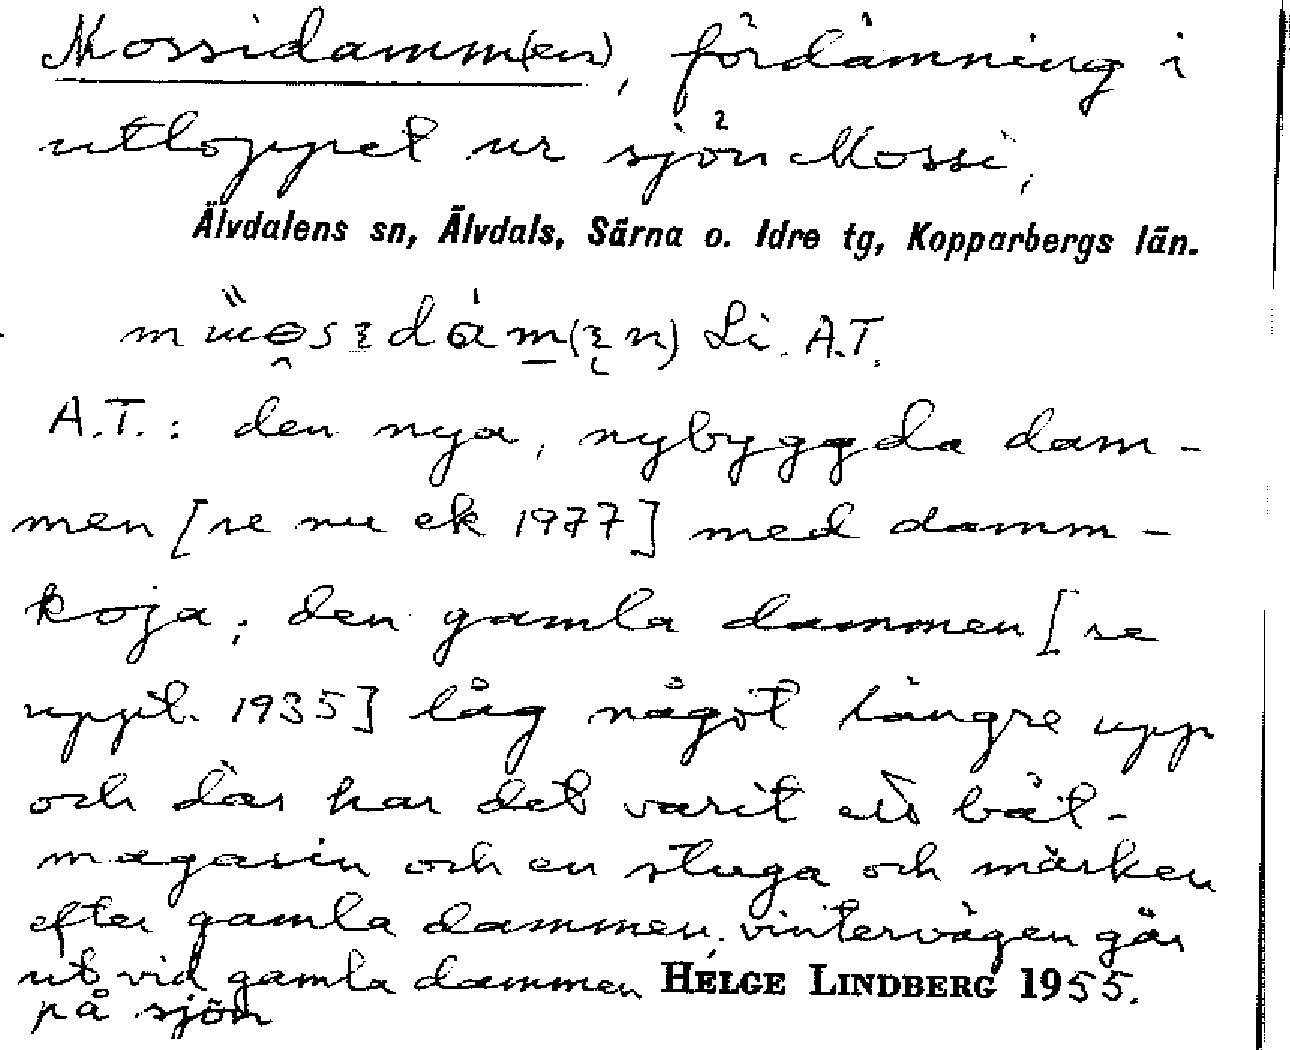 Mossidamm(en), fördämning i
utloppet ur sjön Mossi,
Älvdalens sn, Älvdals, Särna o. Idre tg, Kopparbergs län.
Li. A.T.
A.T.: den nya, nybyggda dam-
men [se nu ek 1977] med damm-
koja; den gamla dammen [se
uppt. 1935] låg något längre upp
och där har det varit ett båt-
magasin och en stuga och märken
efter gamla dammen; vintervägen går
ut vid gamla dammen HELGE LINDBERG 1955.
på sjön